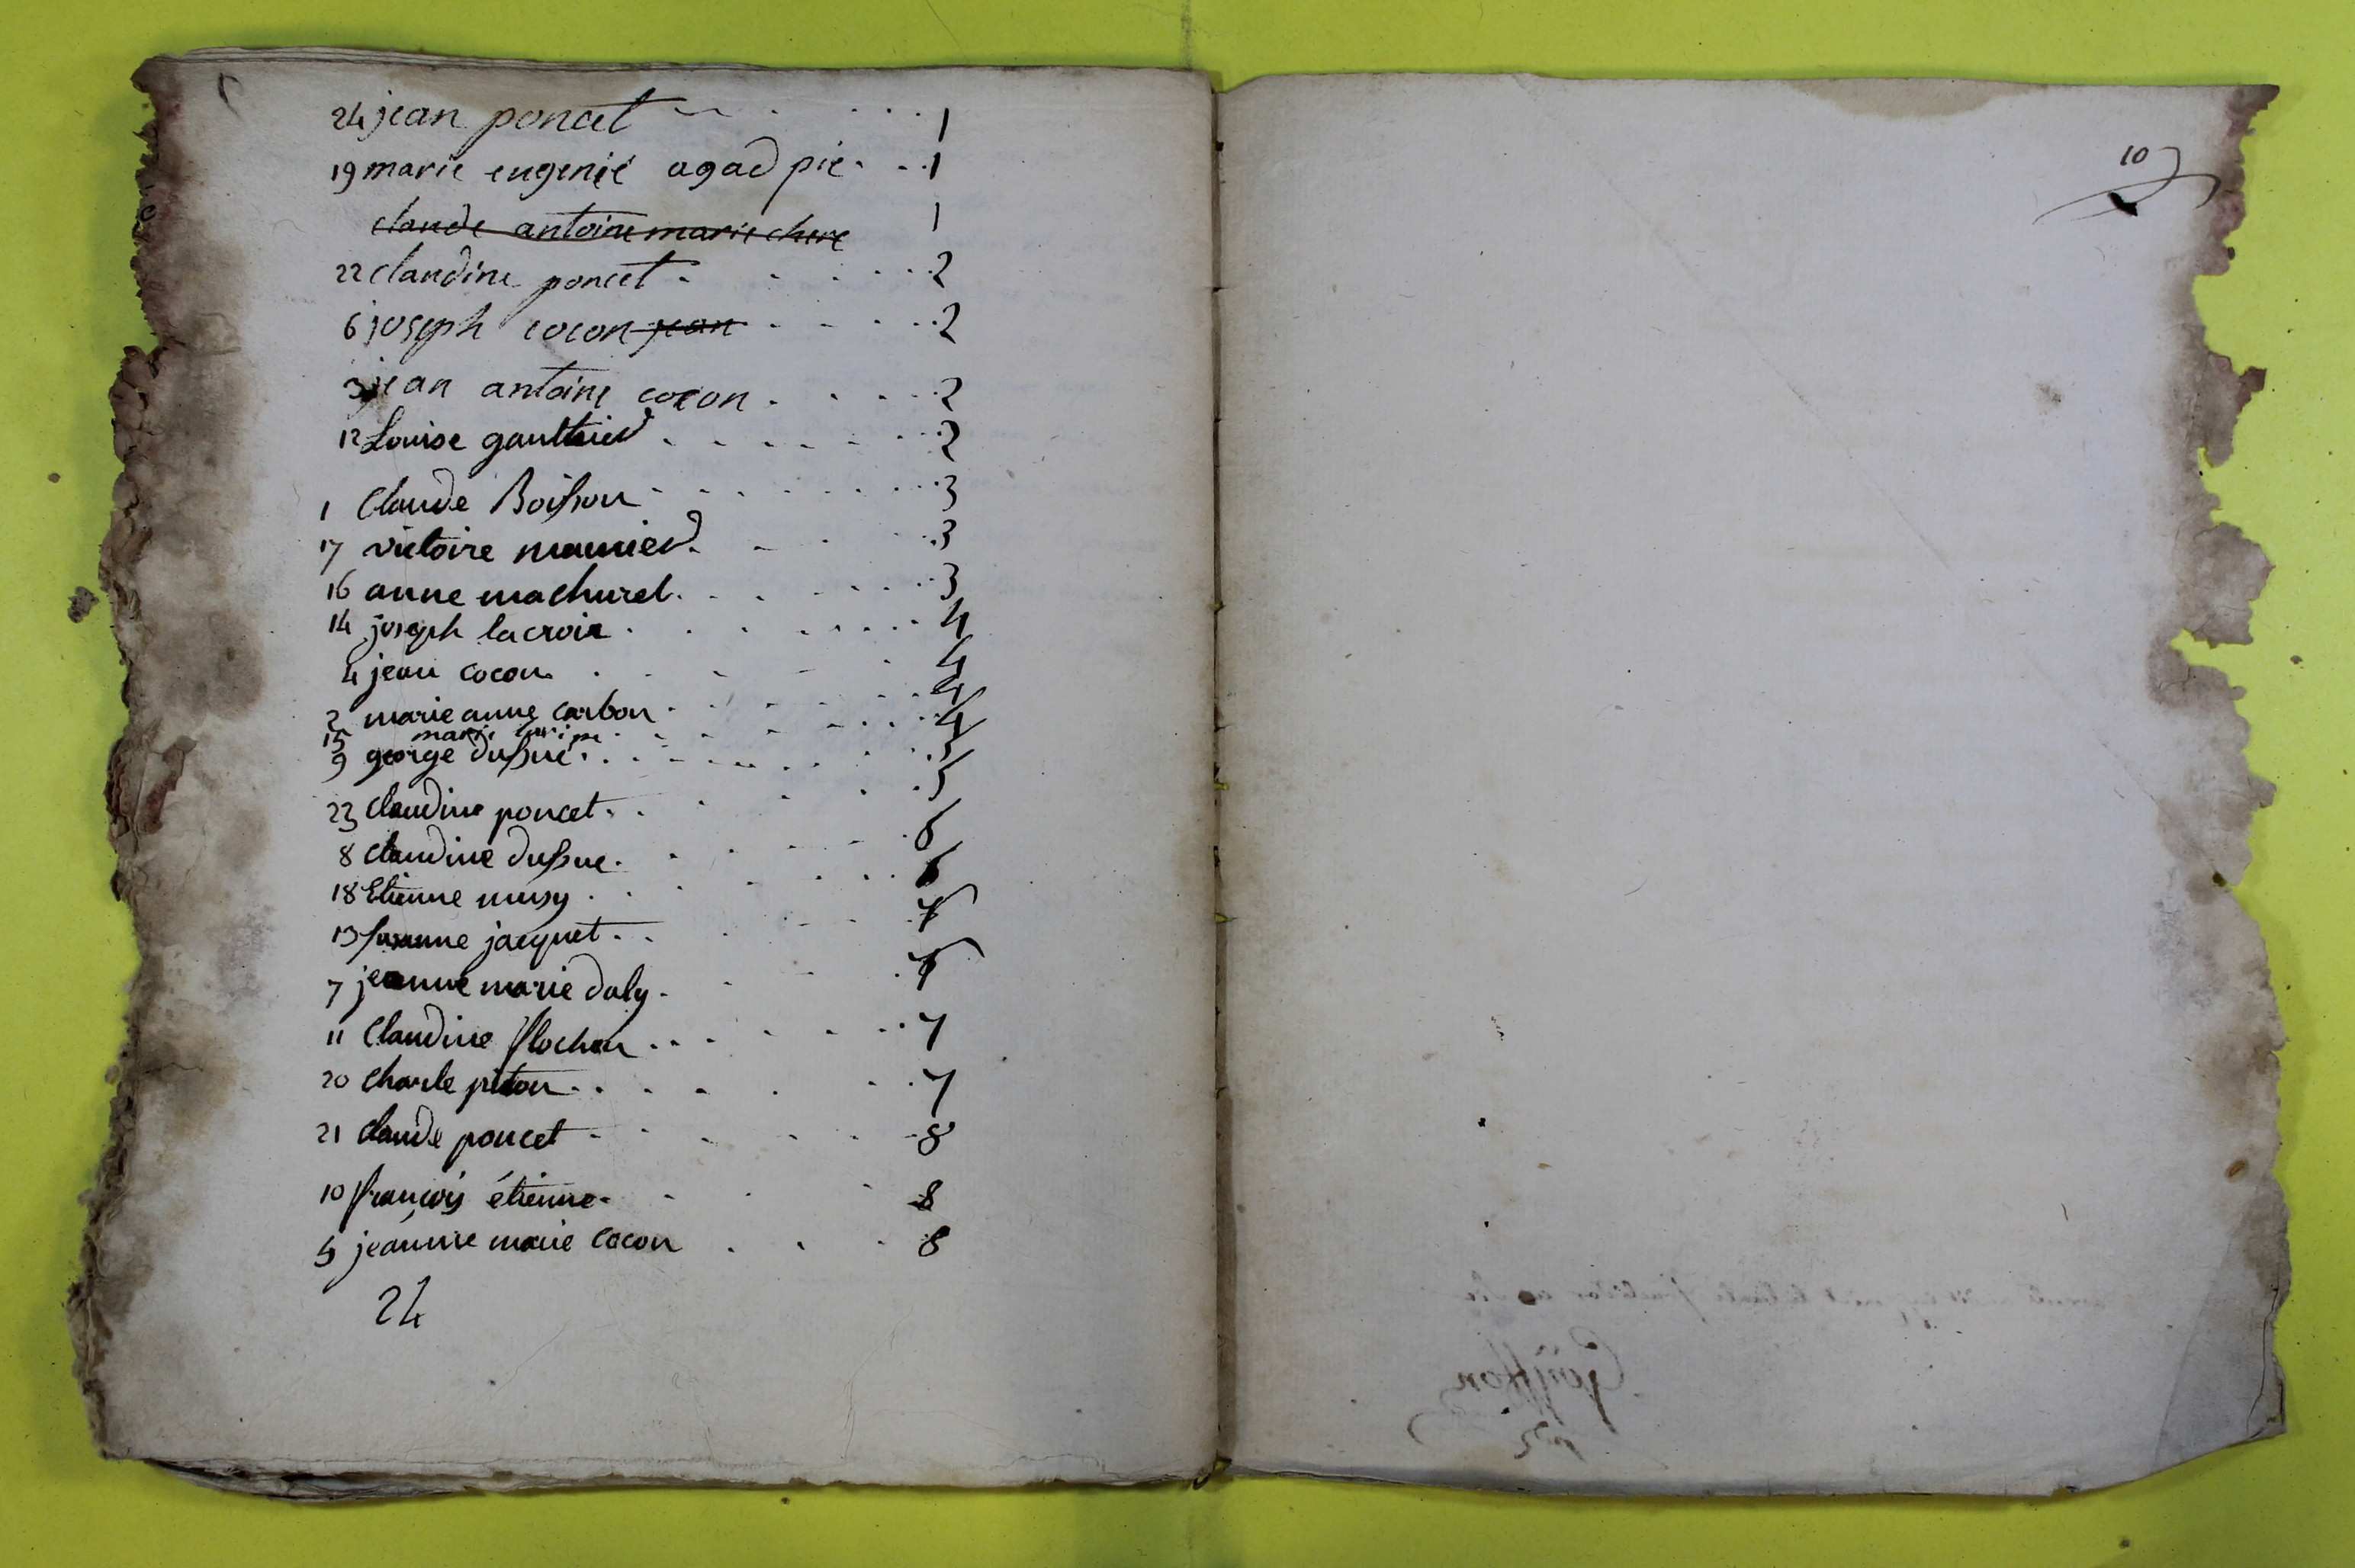 24 jean poncet 1
19 marie eugenie agad pie 1
claude antoine marie chere 1
22 claudine poncet 2
6 joseph cocon jean 2
3 jean antoine cocon 2
12 Louise gauthier 2
1 Claude Boisson 3
17 victoire meunier 3
16 anne machurel 3
14 joseph lacroix 4
4 jean cocon 4
2 marie anne carbon 4
15 marie 4
9 george dussue 5
23 claudine poncet 5
8 claudine dussue 6
18 Etienne musy 6
13 jacquet
7 jeanne marie daly
11 Claudine flochon 7
20 Charle piton 7
21 Claude poncet 8
10 françois étienne 8
5 jeanne marie cocon 8
24
10